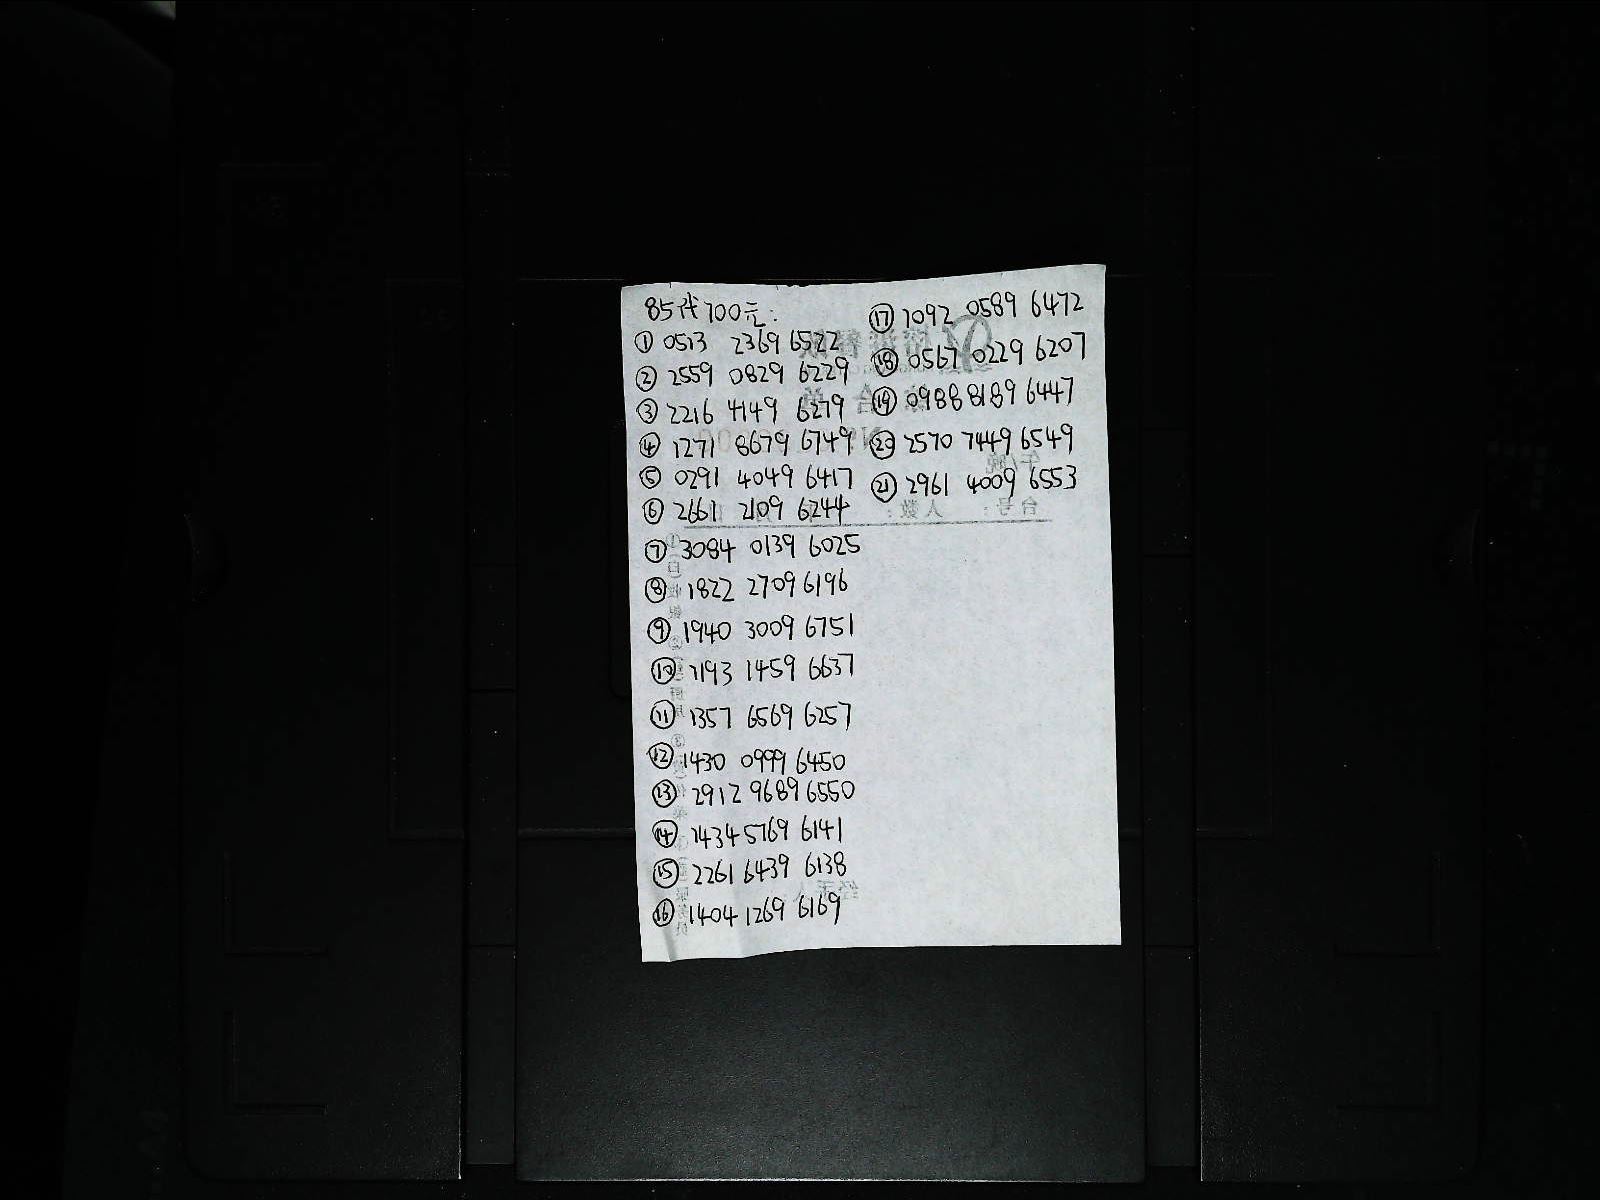 85代100元:
① 0513 2369 6522
② 2559 0829 6229
③ 2216 4149 6279
④ 1271 8679 6749
⑤ 0291 4049 6417
⑥ 2661 2109 6244
⑦ 3084 0139 6025
⑧ 1822 2709 6196
⑨ 1940 3009 6751
⑩ 1193 1459 6637
⑪ 1357 6569 6257
⑫ 1430 0999 6450
⑬ 2912 9689 6550
⑭ 1434 5769 6141
⑮ 2261 6439 6138
⑯ 1404 1269 6169
⑰ 1092 0589 6472
⑱ 0567 0229 6207
⑲ 0988 8189 6447
⑳ 2570 7449 6549
㉑ 2961 4009 6553
台号: 人数: